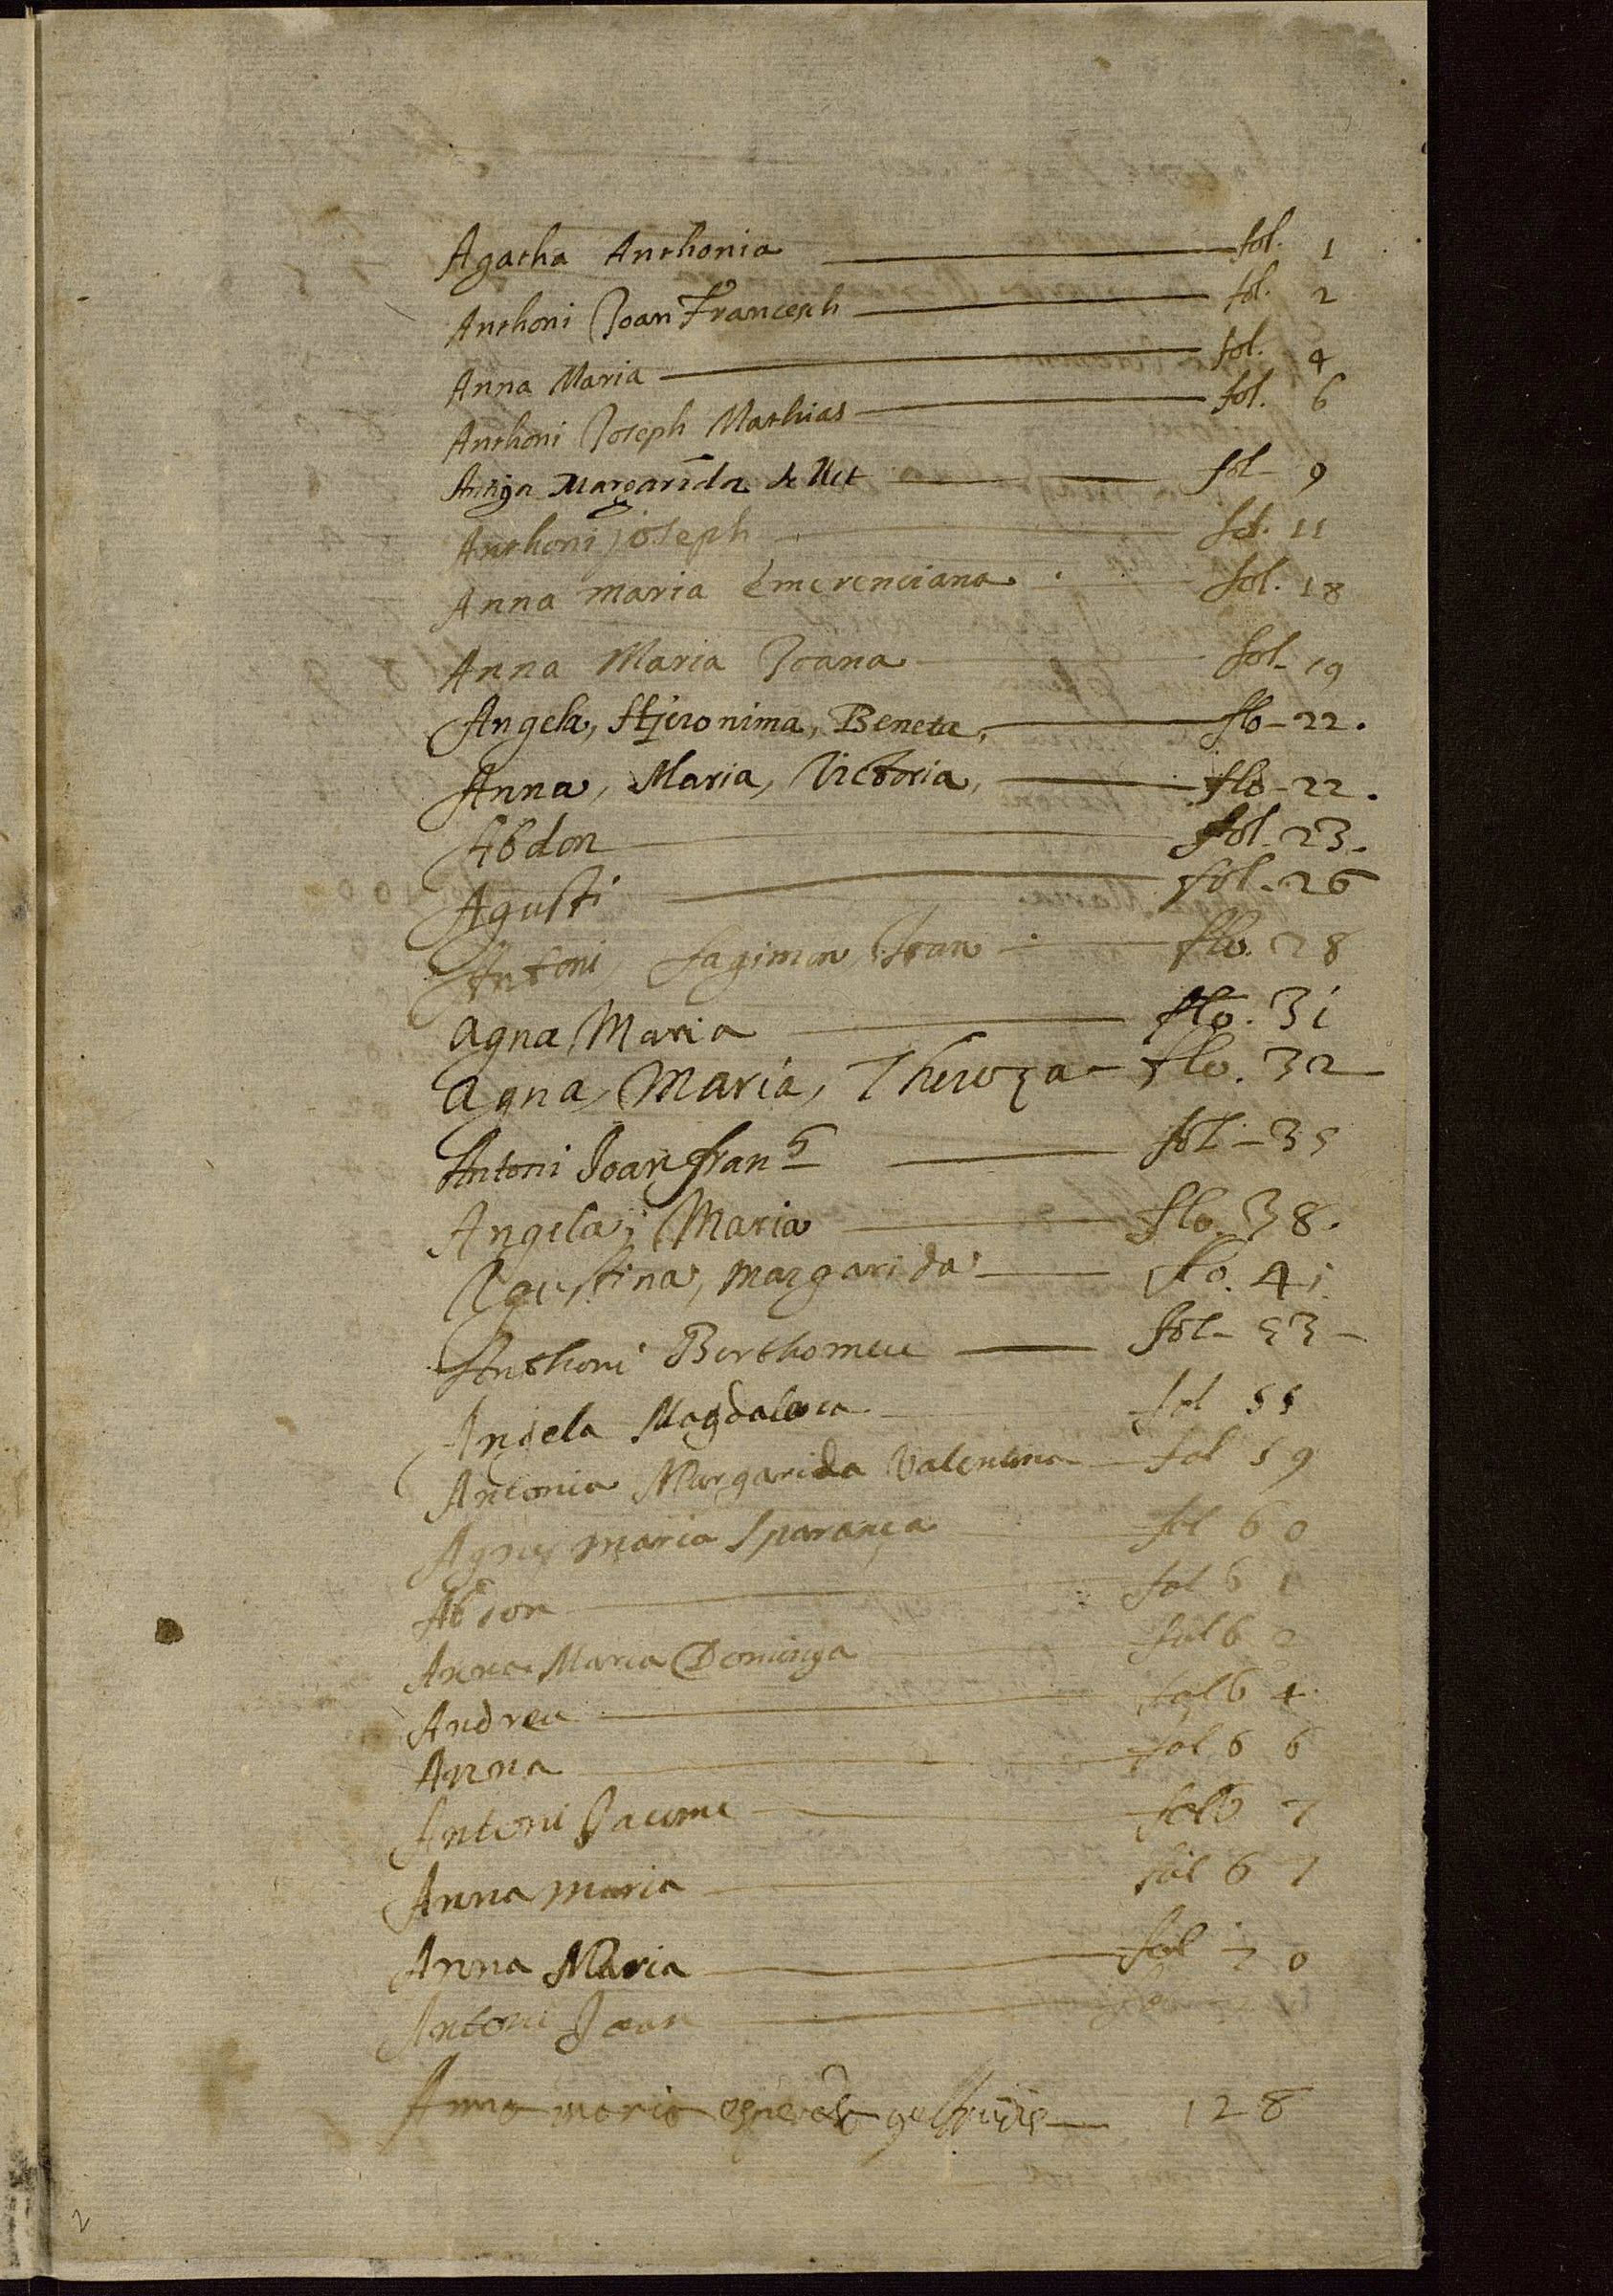 Agatha Anthonia fol. 1
Anthoni Joan Francesch fol. 2
Anna Maria fol. 4
Anthoni Joseph Mathias fol. 6
Margarida fol 9
Anthoni joseph fol. 11
Anna maria emerenciana fol. 18
Anna Maria Joana fol. 19
Angela, Hjeronima, Beneta, flo-22.
Anna, Maria, Victoria, flo-22.
Abdon fol-23.
Agusti fol-26
Antoni, fagimon, Joan flo. 28
Agna Maria flo. 31
Agna, Maria, Thereza flo. 32
Antoni Joan fran fol-35
Angela, Maria flo. 38.
Agustina, margarida flo. 41
Anthoni Berthomeu fol-53-
Angela Magdalena fol 55
Antonia Margarida Valentina fol 59
Agnes maria Sparança fol 60
fol 61
Anna Maria Dominga fol 6
Andreu fol 64
Anna fol 66
Antoni Jaume fol 67
Anna maria fol 67
Anna Maria fol 70
Antoni Joan
Anna maria 128
2